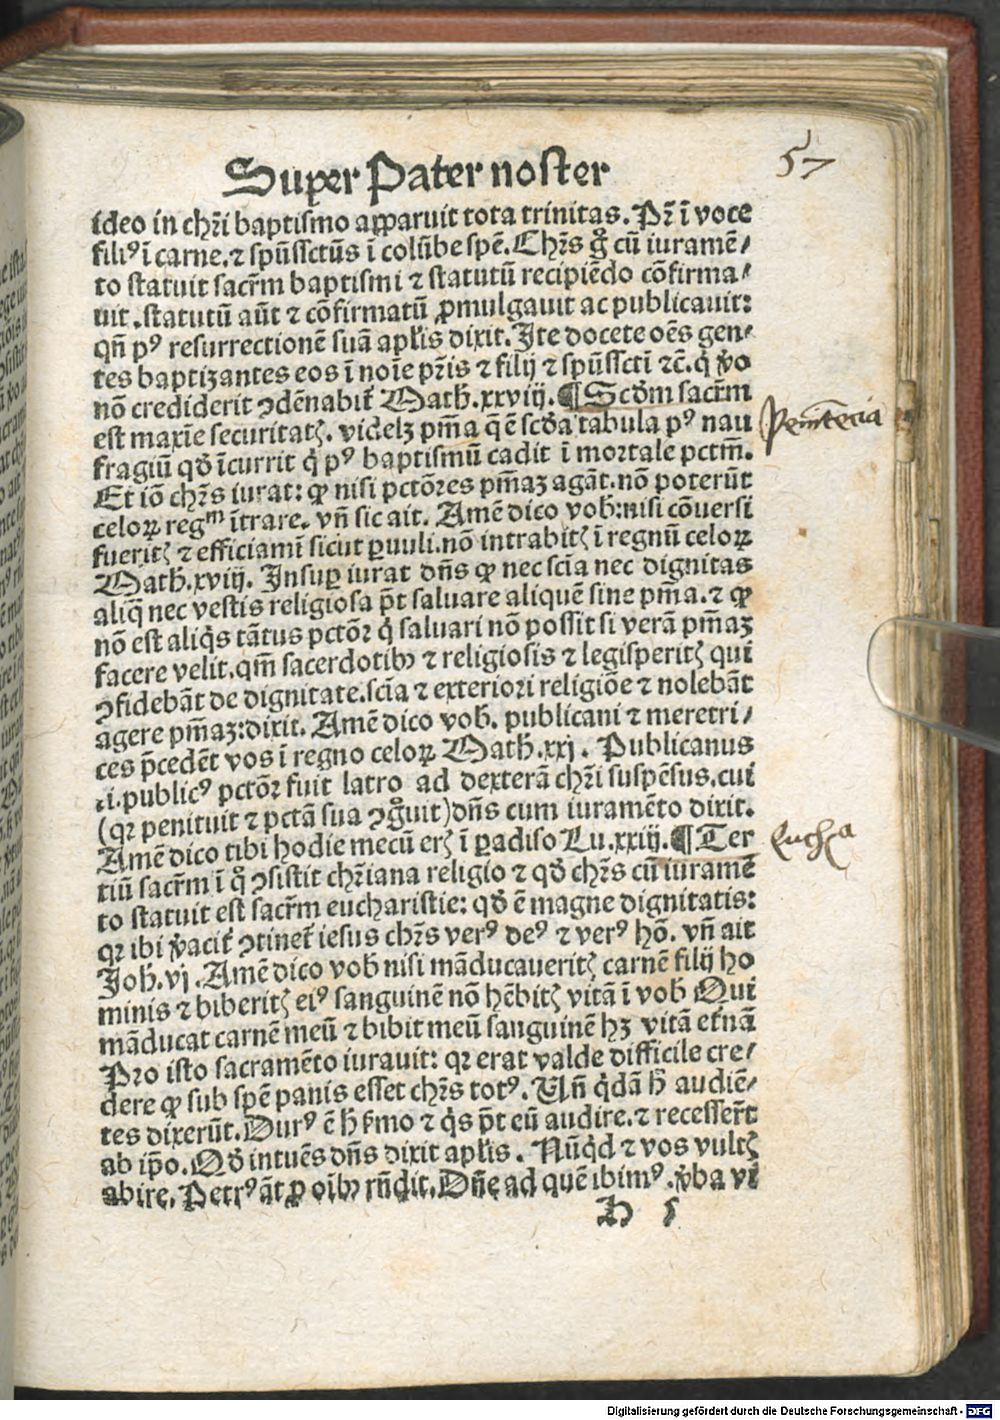 57
Super Pater noster
ideo in chr̄i baptismo apparuit tota trinitas. Pr̄ ī voce
filiꝰ ī carne. ⁊ sp̄ūssctūs ī colūbe spē. Chr̄s gͦ cū iuramē⸗
to statuit sacr̄m baptismi ⁊ statutū recipiēdo cōfirma⸗
uit. statutū aūt ⁊ cōfirmatū ꝓmulgauit ac publicauit:
qn̄ pꝰ resurrectionē suā apl̓is dixit. Ite docete oēs gen⸗
tes baptizantes eos ī noīe pr̄is ⁊ filij ⁊ sp̄ūssctī ⁊c̄. qͥ ꝟo
nō crediderit ꝯdēnabit᷑ Math̓. xxviij. ¶ Scd̓m sacr̄m
est maxīe securitatꝭ. videlꝫ pn̄ia q̄ ē scd̓a tabula pꝰ nau
fragiū qd̓ īcurrit qͥ pꝰ baptismū cadit ī mortale pctm̄.
Et iō chr̄s iurat: ꝙ nisi pctōres pn̄iaꝫ agāt. nō poterūt
celoꝝ regᵐ ītrare. vn̄ sic ait. Amē dico vob̓: nisi cōuersi
fueritꝭ ⁊ efficiamī sicut ꝑuuli. nō intrabitꝭ ī regnū celoꝝ
Math̓. xviij. Insuꝑ iurat dn̄s ꝙ nec scīa nec dignitas
aliq̄ nec vestis religiosa pt̄ saluare aliquē sine pn̄ia. ⁊ ꝙ
nō est aliqͥs tātus pctōꝛ qͥ saluari nō possit si verā pn̄iaꝫ
facere velit. qm̄ sacerdotibꝰ ⁊ religiosis ⁊ legisperitꝭ qui
ꝯfidebāt de dignitate. scīa ⁊ exteriori religiōe ⁊ nolebāt
agere pn̄iaꝫ: dixit. Amē dico vob̓. publicani ⁊ meretri⸗
ces p̄cedēt vos ī regno celoꝝ Math̓. xxj. Publicanus
.i. publicꝰ pctōꝛ fuit latro ad dexterā chr̄i suspēsus. cui
(qꝛ penituit ⁊ pctā sua ꝯgͦuit) dn̄s cum iuramēto dixit.
Amē dico tibi hodie mecū erꝭ ī ꝑadiso Lu. xxiij. ¶ Ter
tiū sacr̄m ī qͦ ꝯsistit chr̄iana religio ⁊ qd̓ chr̄s cū iuramē
to statuit est sacr̄m eucharistie: qd̓ ē magne dignitatis:
qꝛ ibi ꝟacit᷑ ꝯtinet᷑ iesus chr̄s verꝰ deꝰ ⁊ verꝰ hō. vn̄ ait
Joh̓. vj. Amē dico vob̓ nisi māducaueritꝭ carnē filij ho
minis ⁊ biberitꝭ eiꝰ sanguinē nō hēbitꝭ vitā ī vob̓ Qui
māducat carnē meū ⁊ bibit meū sanguinē hꝫ vitā et᷑nā
Pro isto sacramēto iurauit: qꝛ erat valde difficile cre⸗
dere ꝙ sub spē panis esset chr̄s totꝰ. Vn̄ qͥdā h̓ audiē⸗
tes dixerūt. Durꝰ ē h̓ ẜmo ⁊ qͥs pt̄ eū audire. ⁊ recesser̄t
ab ip̄o. Qd̓ intuēs dn̄s dixit apl̓is. Nūqͥd ⁊ vos vultꝭ
abire. Petrꝰ āt ꝓ oībꝰ rn̄dit. Dn̄e ad quē ibimꝰ. ꝟba vi
H 5
Penitencia
Euchᵃ
Digitalisierung gefördert durch die Deutsche Forschungsgemeinschaft - DFG